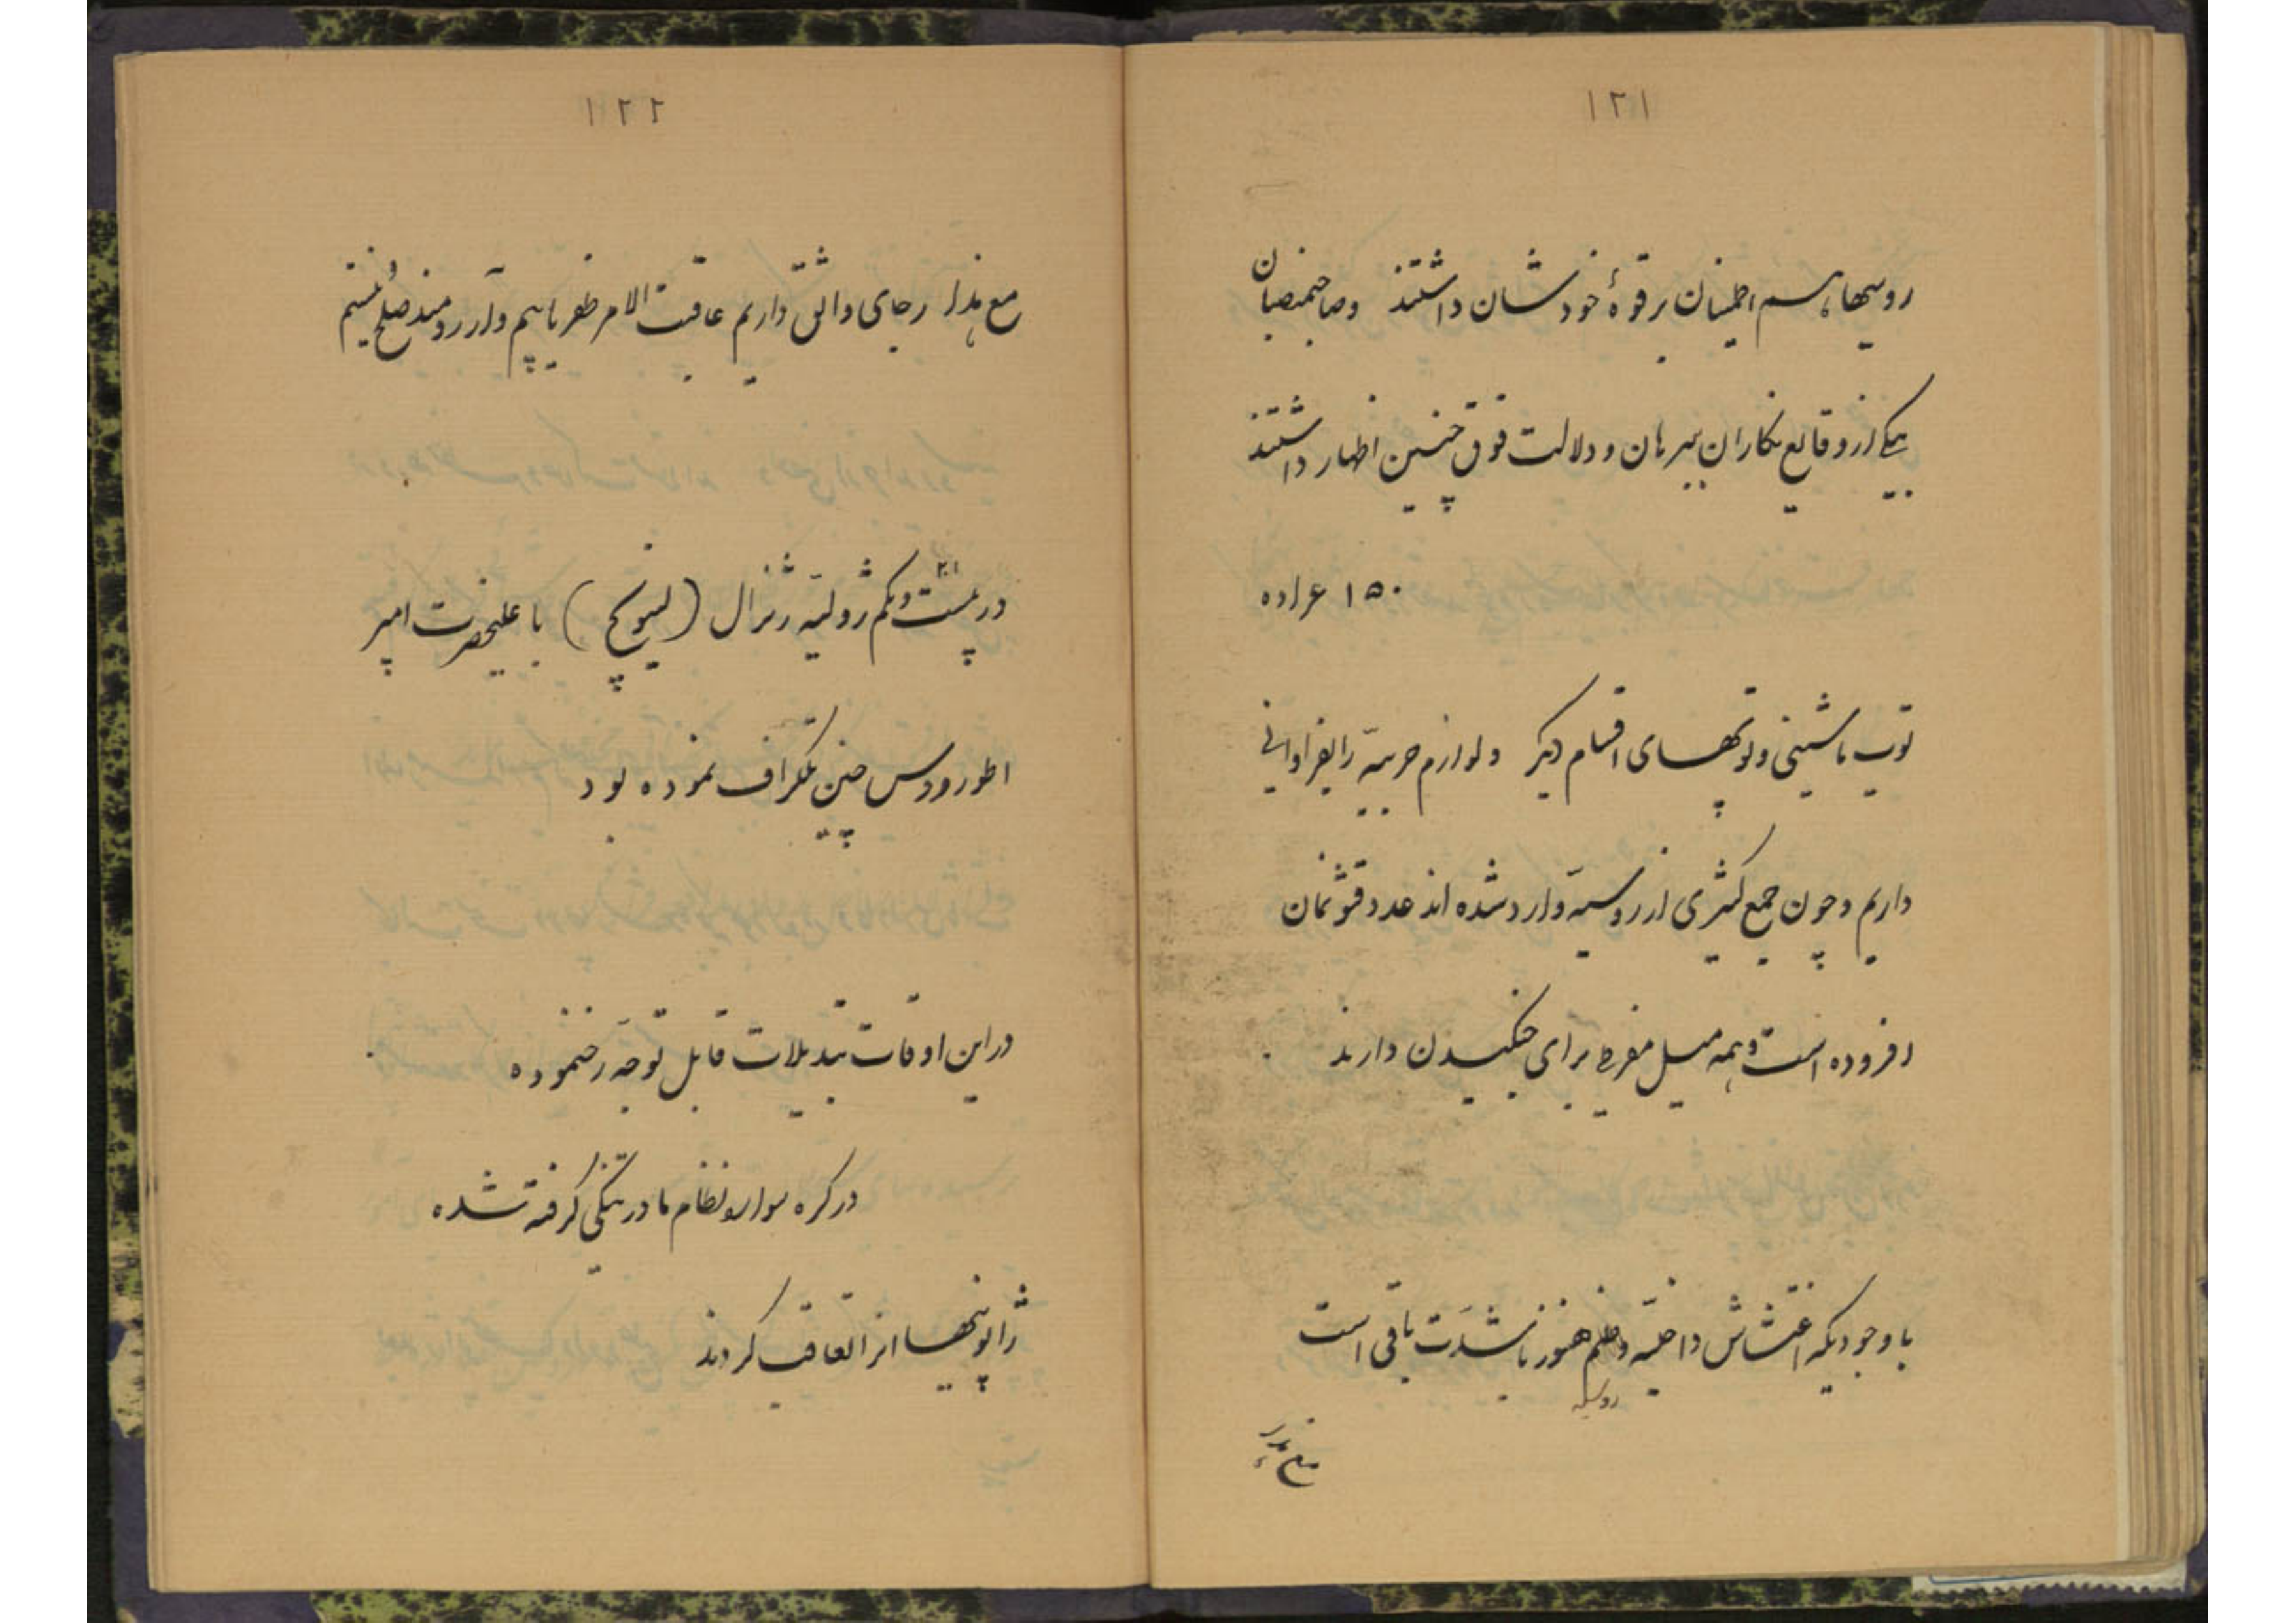 ۱۲۱
روسیها هم اطمینان بر قوهٔ خودشان داشتند وصاحبمنصبان
بیکی از وقایع نکاران ببرهان و دلالت فوق چنین اظهار داشتند
۱۵۰ عراده
توپ ماشینی و توپهای اقسام دیکر ولوازم حربیه را بفراوانی
داریم وچون جمع کثیری از روسیه وارد شده اند عدد قشونمان
افزوده است وهمه میل مفرطی برای جنکیدن دارند
با وجودیکه اغتشاش داخلیه هنوز باشدت باقی است
روسیه
مع هذا
۱۲۲
مع هذا رجای واثق داریم عاقبت الامر ظفر یابیم و آرزومند صلح نیستیم
۲۱
در بیست ویکم ژوئیه ژنرال (لینویچ) با علیحضرت امپر
اطور روس چنین تلکراف نموده بود
در این اوقات تبدیلات قابل توجه رخنموده
در کره سواره نظام ما در تنکی کرفته شده
ژاپونیها انرا تعاقب کردند